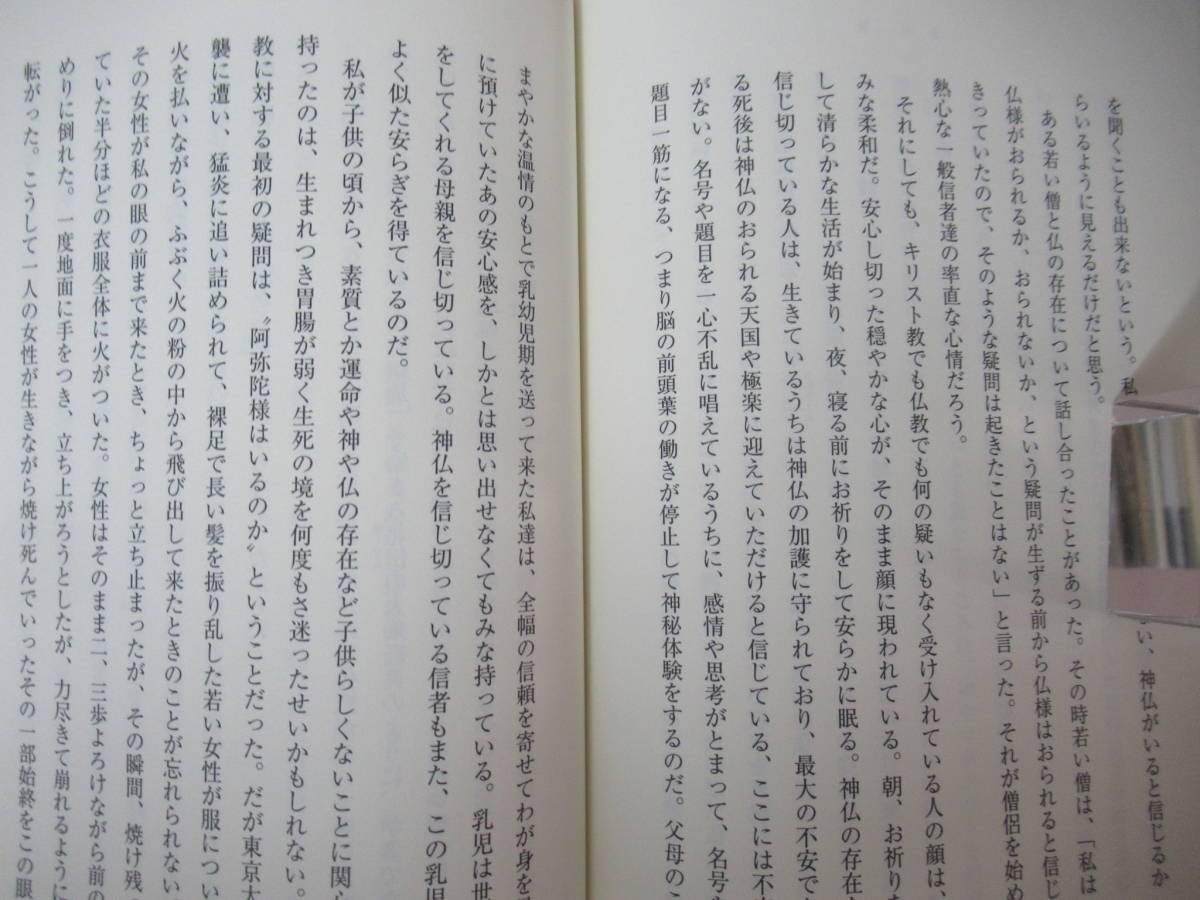 を聞くことも出来ないという。私
い、神仏がいると信じるか
らいるように見えるだけだと思う。
ある若い僧と仏の存在について話し合ったことがあった。その時若い僧は、「私は
仏様がおられるか、おられないか、という疑問が生ずる前から仏様はおられると信じ
きっていたので、そのような疑問は起きたことはない」と言った。それが僧侶を始め
熱心な一般信者達の率直な心情だろう。
それにしても、キリスト教でも仏教でも何の疑いもなく受け入れている人の顔は、
みな柔和だ。安心し切った穏やかな心が、そのまま顔に現われている。朝、お祈り
して清らかな生活が始まり、夜、寝る前にお祈りをして安らかに眠る。神仏の存在
信じ切っている人は、生きているうちは神仏の加護に守られており、最大の不安で
る死後は神仏のおられる天国や極楽に迎えていただけると信じている、ここには不
がない。名号や題目を一心不乱に唱えているうちに、感情や思考がとまって、名号
題目一筋になる、つまり脳の前頭葉の働きが停止して神秘体験をするのだ。父母のこ
まやかな温情のもとで乳幼児期を送って来た私達は、全幅の信頼を寄せてわが身を
に預けていたあの安心感を、しかとは思い出せなくてもみな持っている。乳児は世
をしてくれる母親を信じ切っている。神仏を信じ切っている信者もまた、この乳児
よく似た安らぎを得ているのだ。
私が子供の頃から、素質とか運命や神や仏の存在など子供らしくないことに関
持ったのは、生まれつき胃腸が弱く生死の境を何度もさ迷ったせいかもしれない。
教に対する最初の疑問は、〝阿弥陀様はいるのか〟ということだった。だが東京大
襲に遭い、猛炎に追い詰められて、裸足で長い髪を振り乱した若い女性が服につい
火を払いながら、ふぶく火の粉の中から飛び出して来たときのことが忘れられない
その女性が私の眼の前まで来たとき、ちょっと立ち止まったが、その瞬間、焼け残
ていた半分ほどの衣服全体に火がついた。女性はそのまま二、三歩よろけながら前の
めりに倒れた。一度地面に手をつき、立ち上がろうとしたが、力尽きて崩れるように
転がった。こうして一人の女性が生きながら焼け死んでいったその一部始終をこの眼